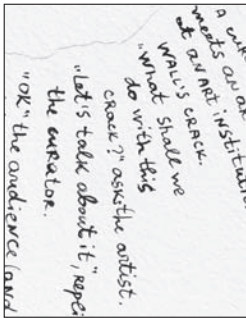 meets an
at an ART institution
WALL'S CRACK.
"What shall we
do with this
crack?" asks the artist.
"Let's talk about it",
the curator.
"OK" the audience (and